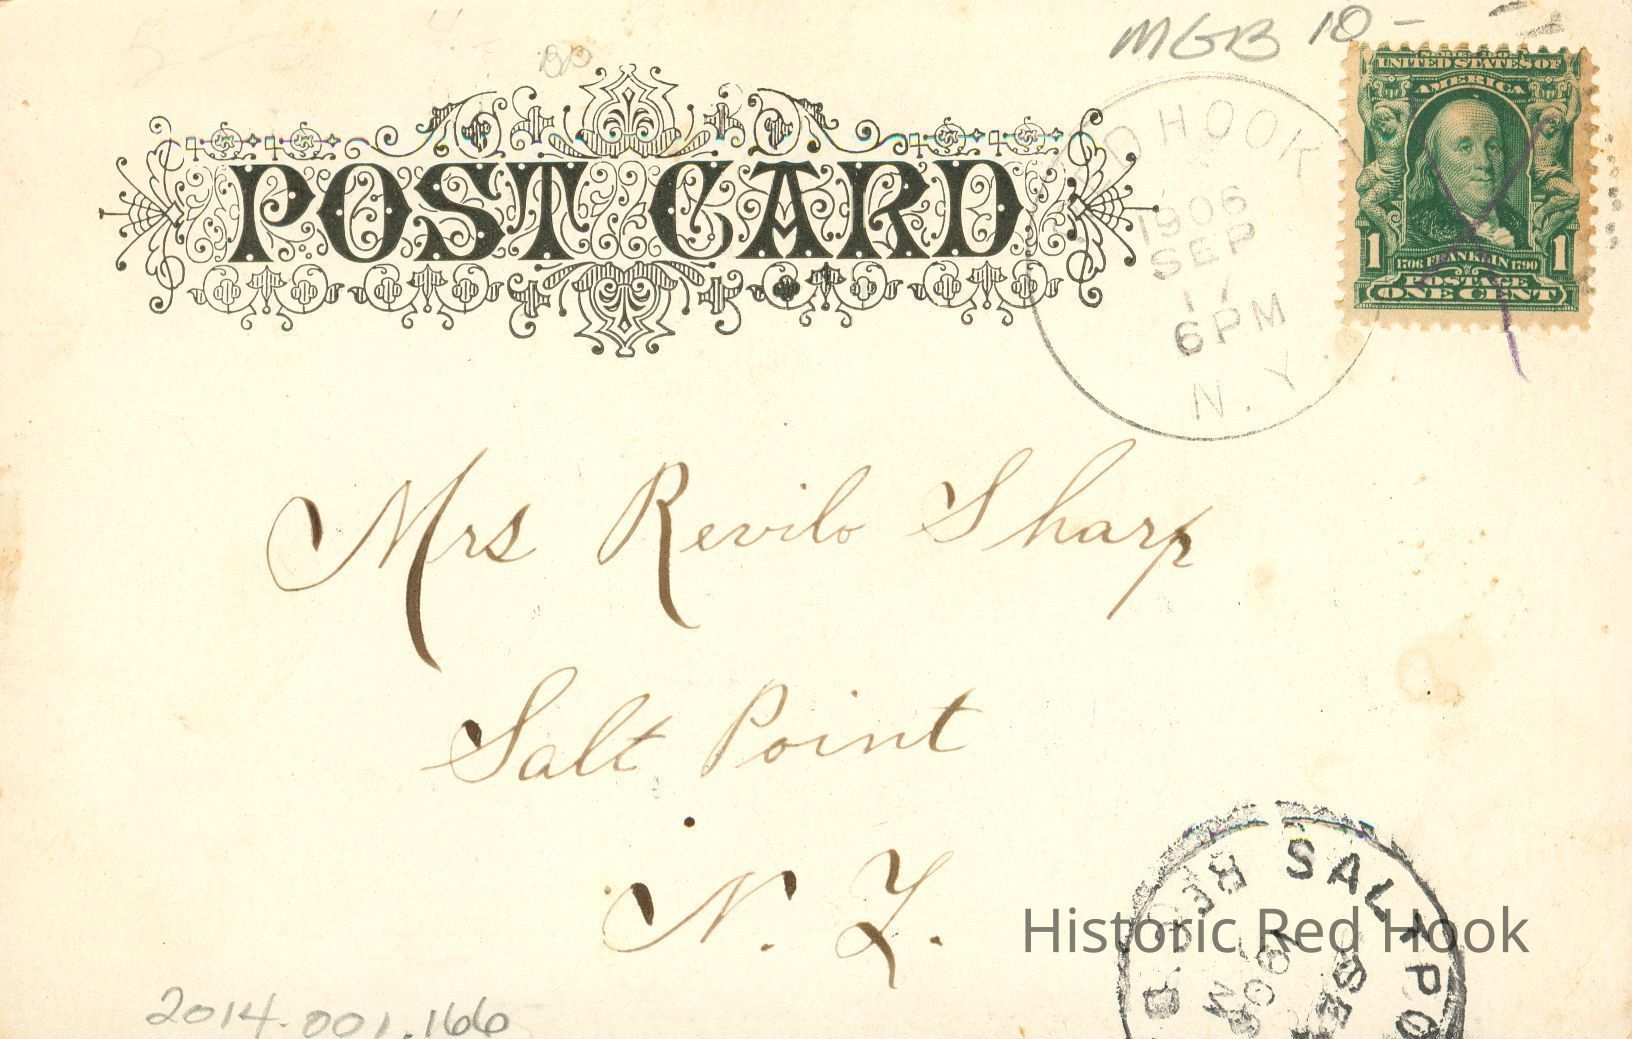 MGB 10-
BB
POST CARD
RED HOOK
1906
SEP
17
6 PM
N.Y.
SERIES 1902
UNITED STATES OF
AMERICA
1 1706 FRANKLIN 1790 1
POSTAGE
ONE CENT
Mrs Revilo Sharp
Salt Point
N. Y.
REC'D
SALT PO
SEP
1906
M
Historic Red Hook
2014.001.166